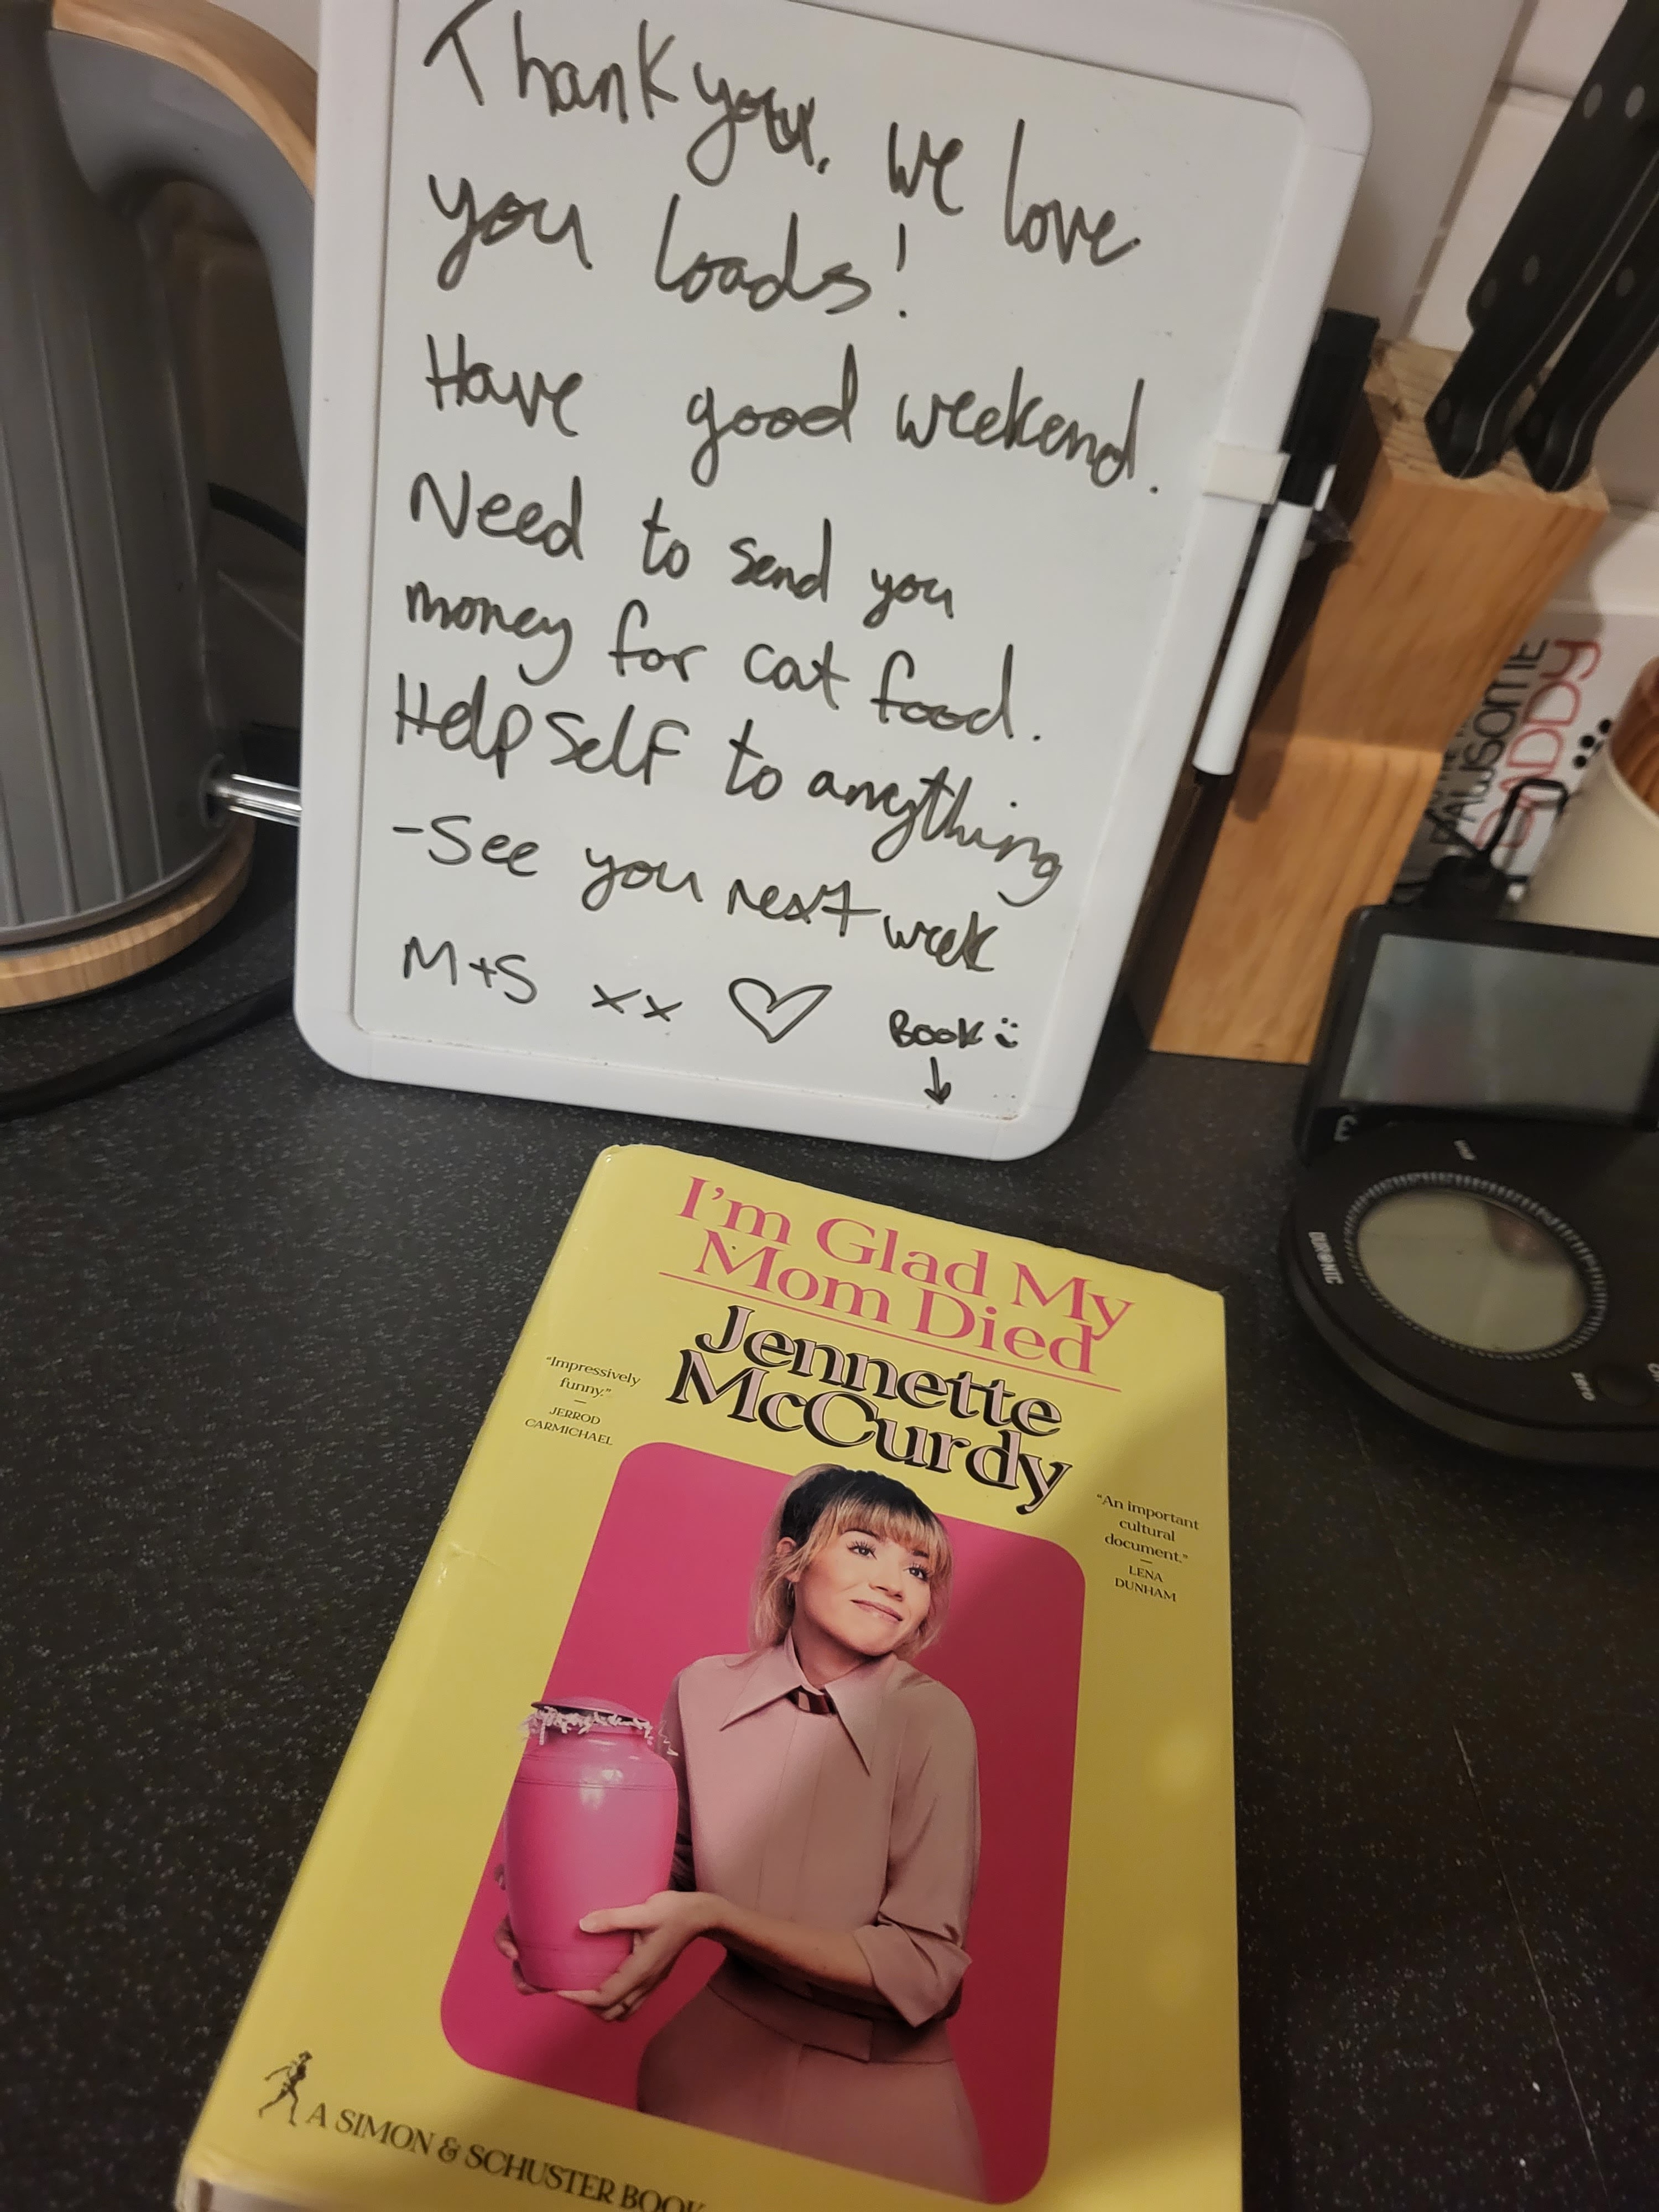 Thank you, we love
you loads!
Have good weekend.
Need to send you
money for cat food.
Help self to anything
- See you next week
M+S xx ♡ Book :)
↓
I'm Glad My
Mom Died
Jennette
McCurdy
"Impressively
funny."
—
JERROD
CARMICHAEL
"An important
cultural
document."
—
LENA
DUNHAM
A SIMON & SCHUSTER BOOK
PAWSOME
DADDY
DURONIC
ZERO